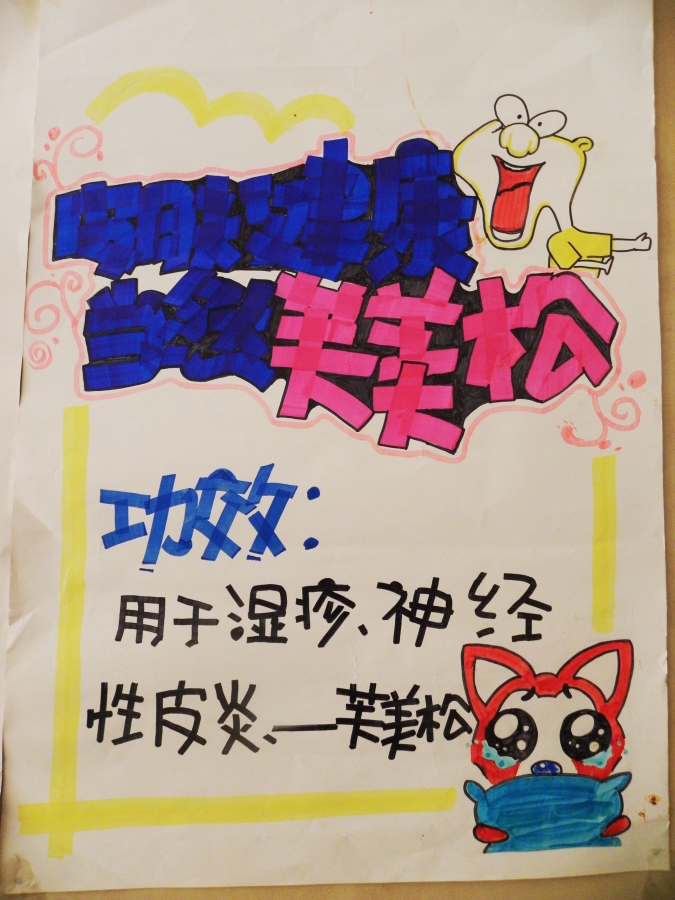 健康
当芙美松
功效：
用于湿疹、神经
性皮炎、——芙美松